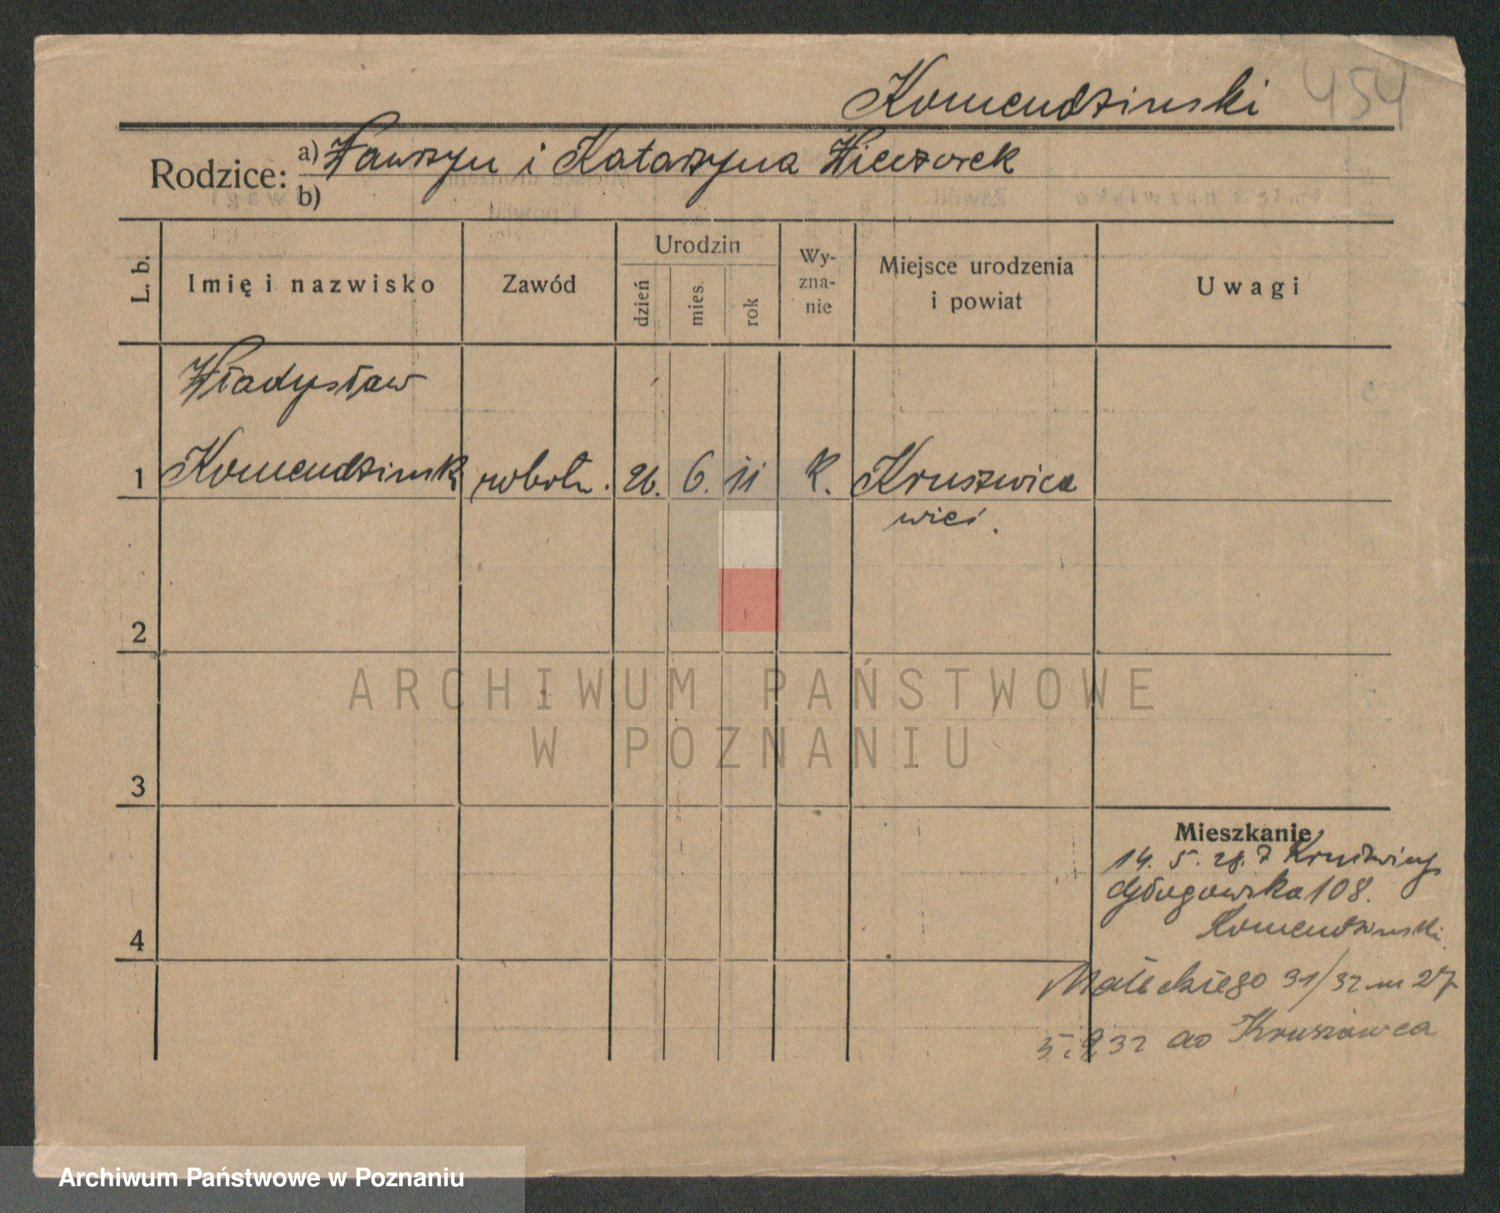 Komendzinski 454
Rodzice: a) Wawrzyn i Katarzyna Wieczorek
b)
L. b. Imię i nazwisko Zawód Urodzin dzień mies. rok Wy-zna-nie Miejsce urodzenia i powiat Uwagi
Władysław
1 Komendzinski robotn. 26. 6. 11 k. Kruszwica
wieś.
2
ARCHIWUM PAŃSTWOWE
W POZNANIU
3
Mieszkanie
14. 5. 28. z Kruszwicy
Głogowska 108.
Komendzinski
4
Małeckiego 31/32 m 27
5.9.32 do Kruszwica
Archiwum Państwowe w Poznaniu